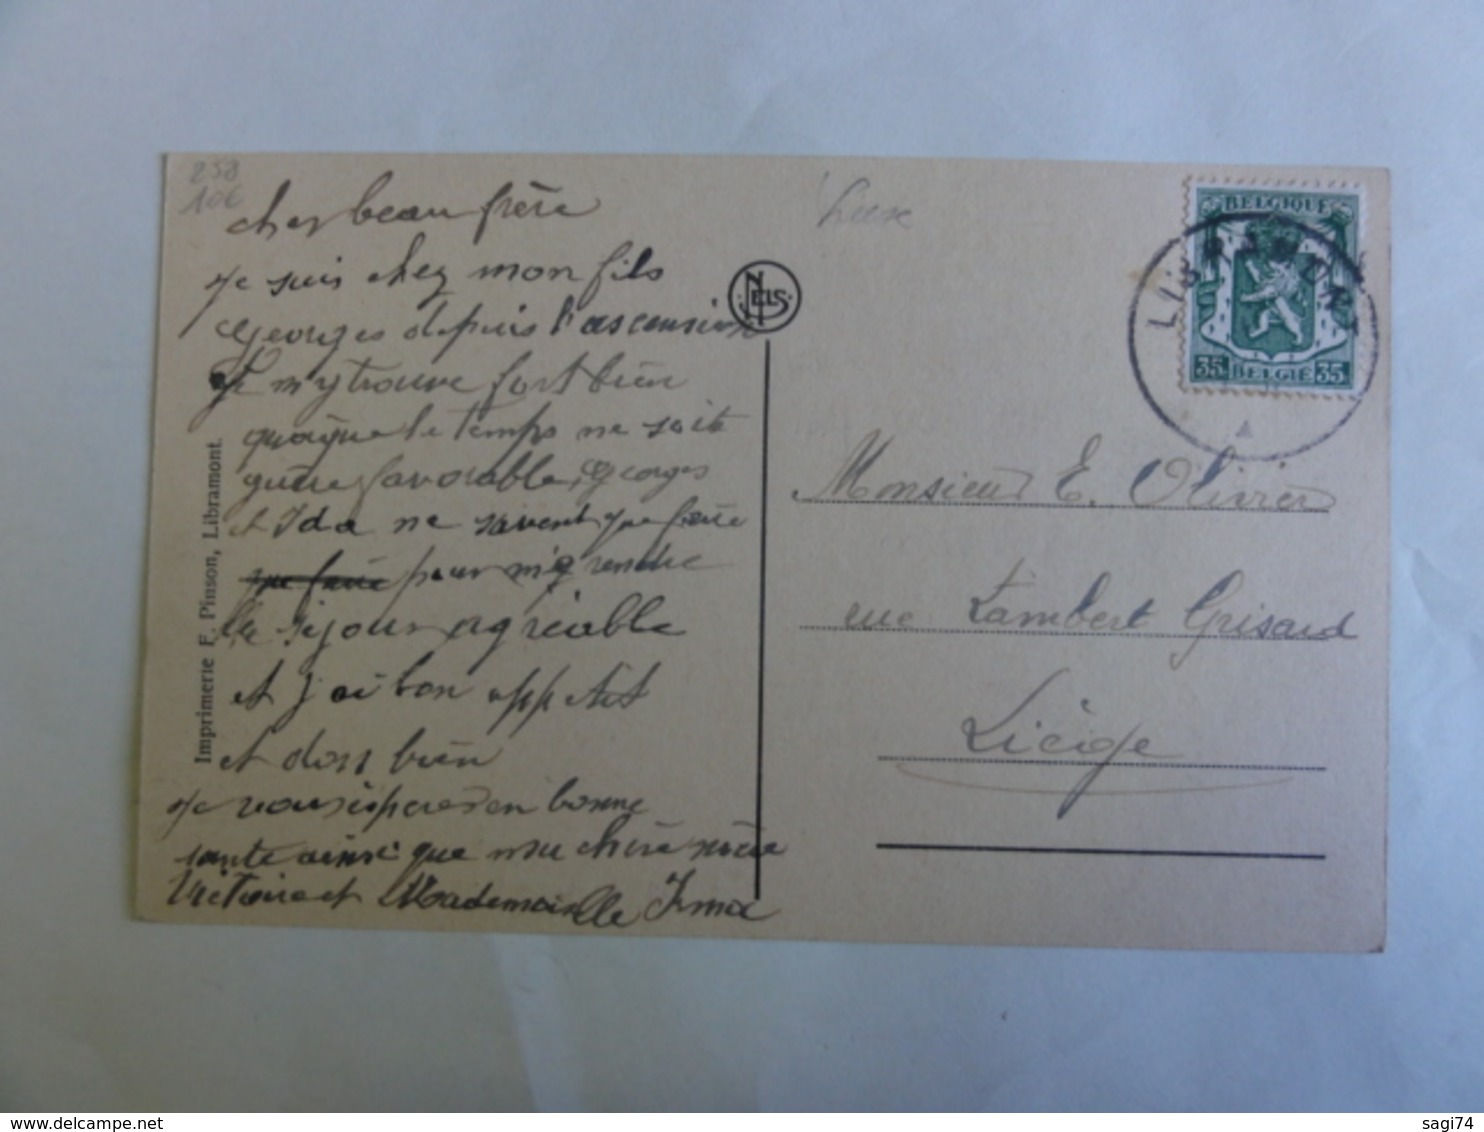 238
10€
cher beau frère
Je suis chez mon fils
Georges depuis l'ascension
Je m'y trouve fort bien
quoique le temps ne soit
guère favorable, Georges
et Ida ne savent que faire
que faire pour m'y rendre
le séjour agréable
et j'ai bon appétit
et dors bien
Je vous espère en bonne
santé ainsi que ma chère nièce
Victoire et Mademoiselle Irma
Imprimerie F. Pinson, Libramont.
NELS
Luxe
BELGIQUE
35 BELGIË 35
LIBRAMONT
Monsieur E. Olivier
rue Lambert Grisard
Liège
delcampe.net
sagi74